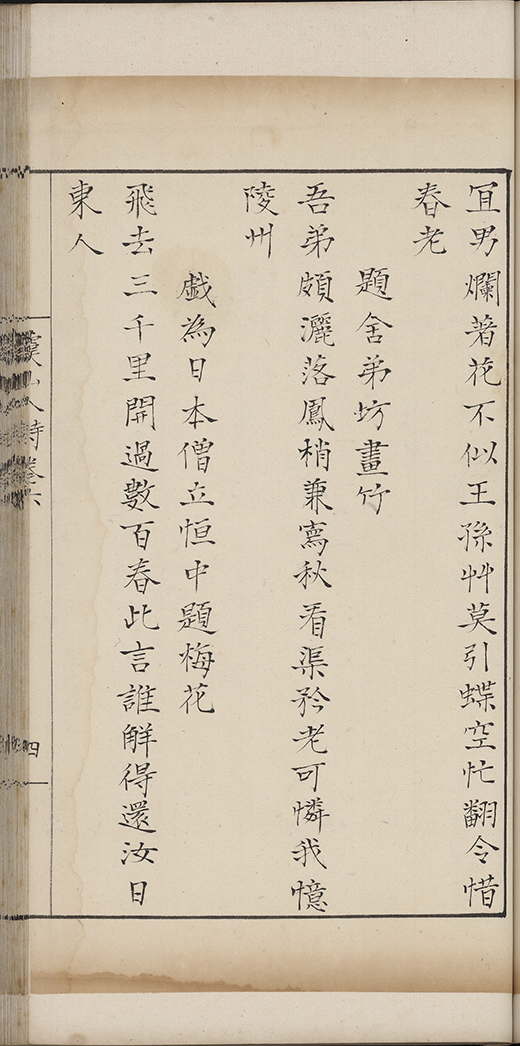 宜男爛著花不似王孫艸莫引蝶空忙翻令惜
春老
題舍弟坊畫竹
吾弟頗灑落鳳梢兼寫秋看渠矜老可憐我憶
陵州
戯為日本僧立恒中題梅花
飛去三千里開過數百春此言誰解得還汝日
東人
人詩卷六
四